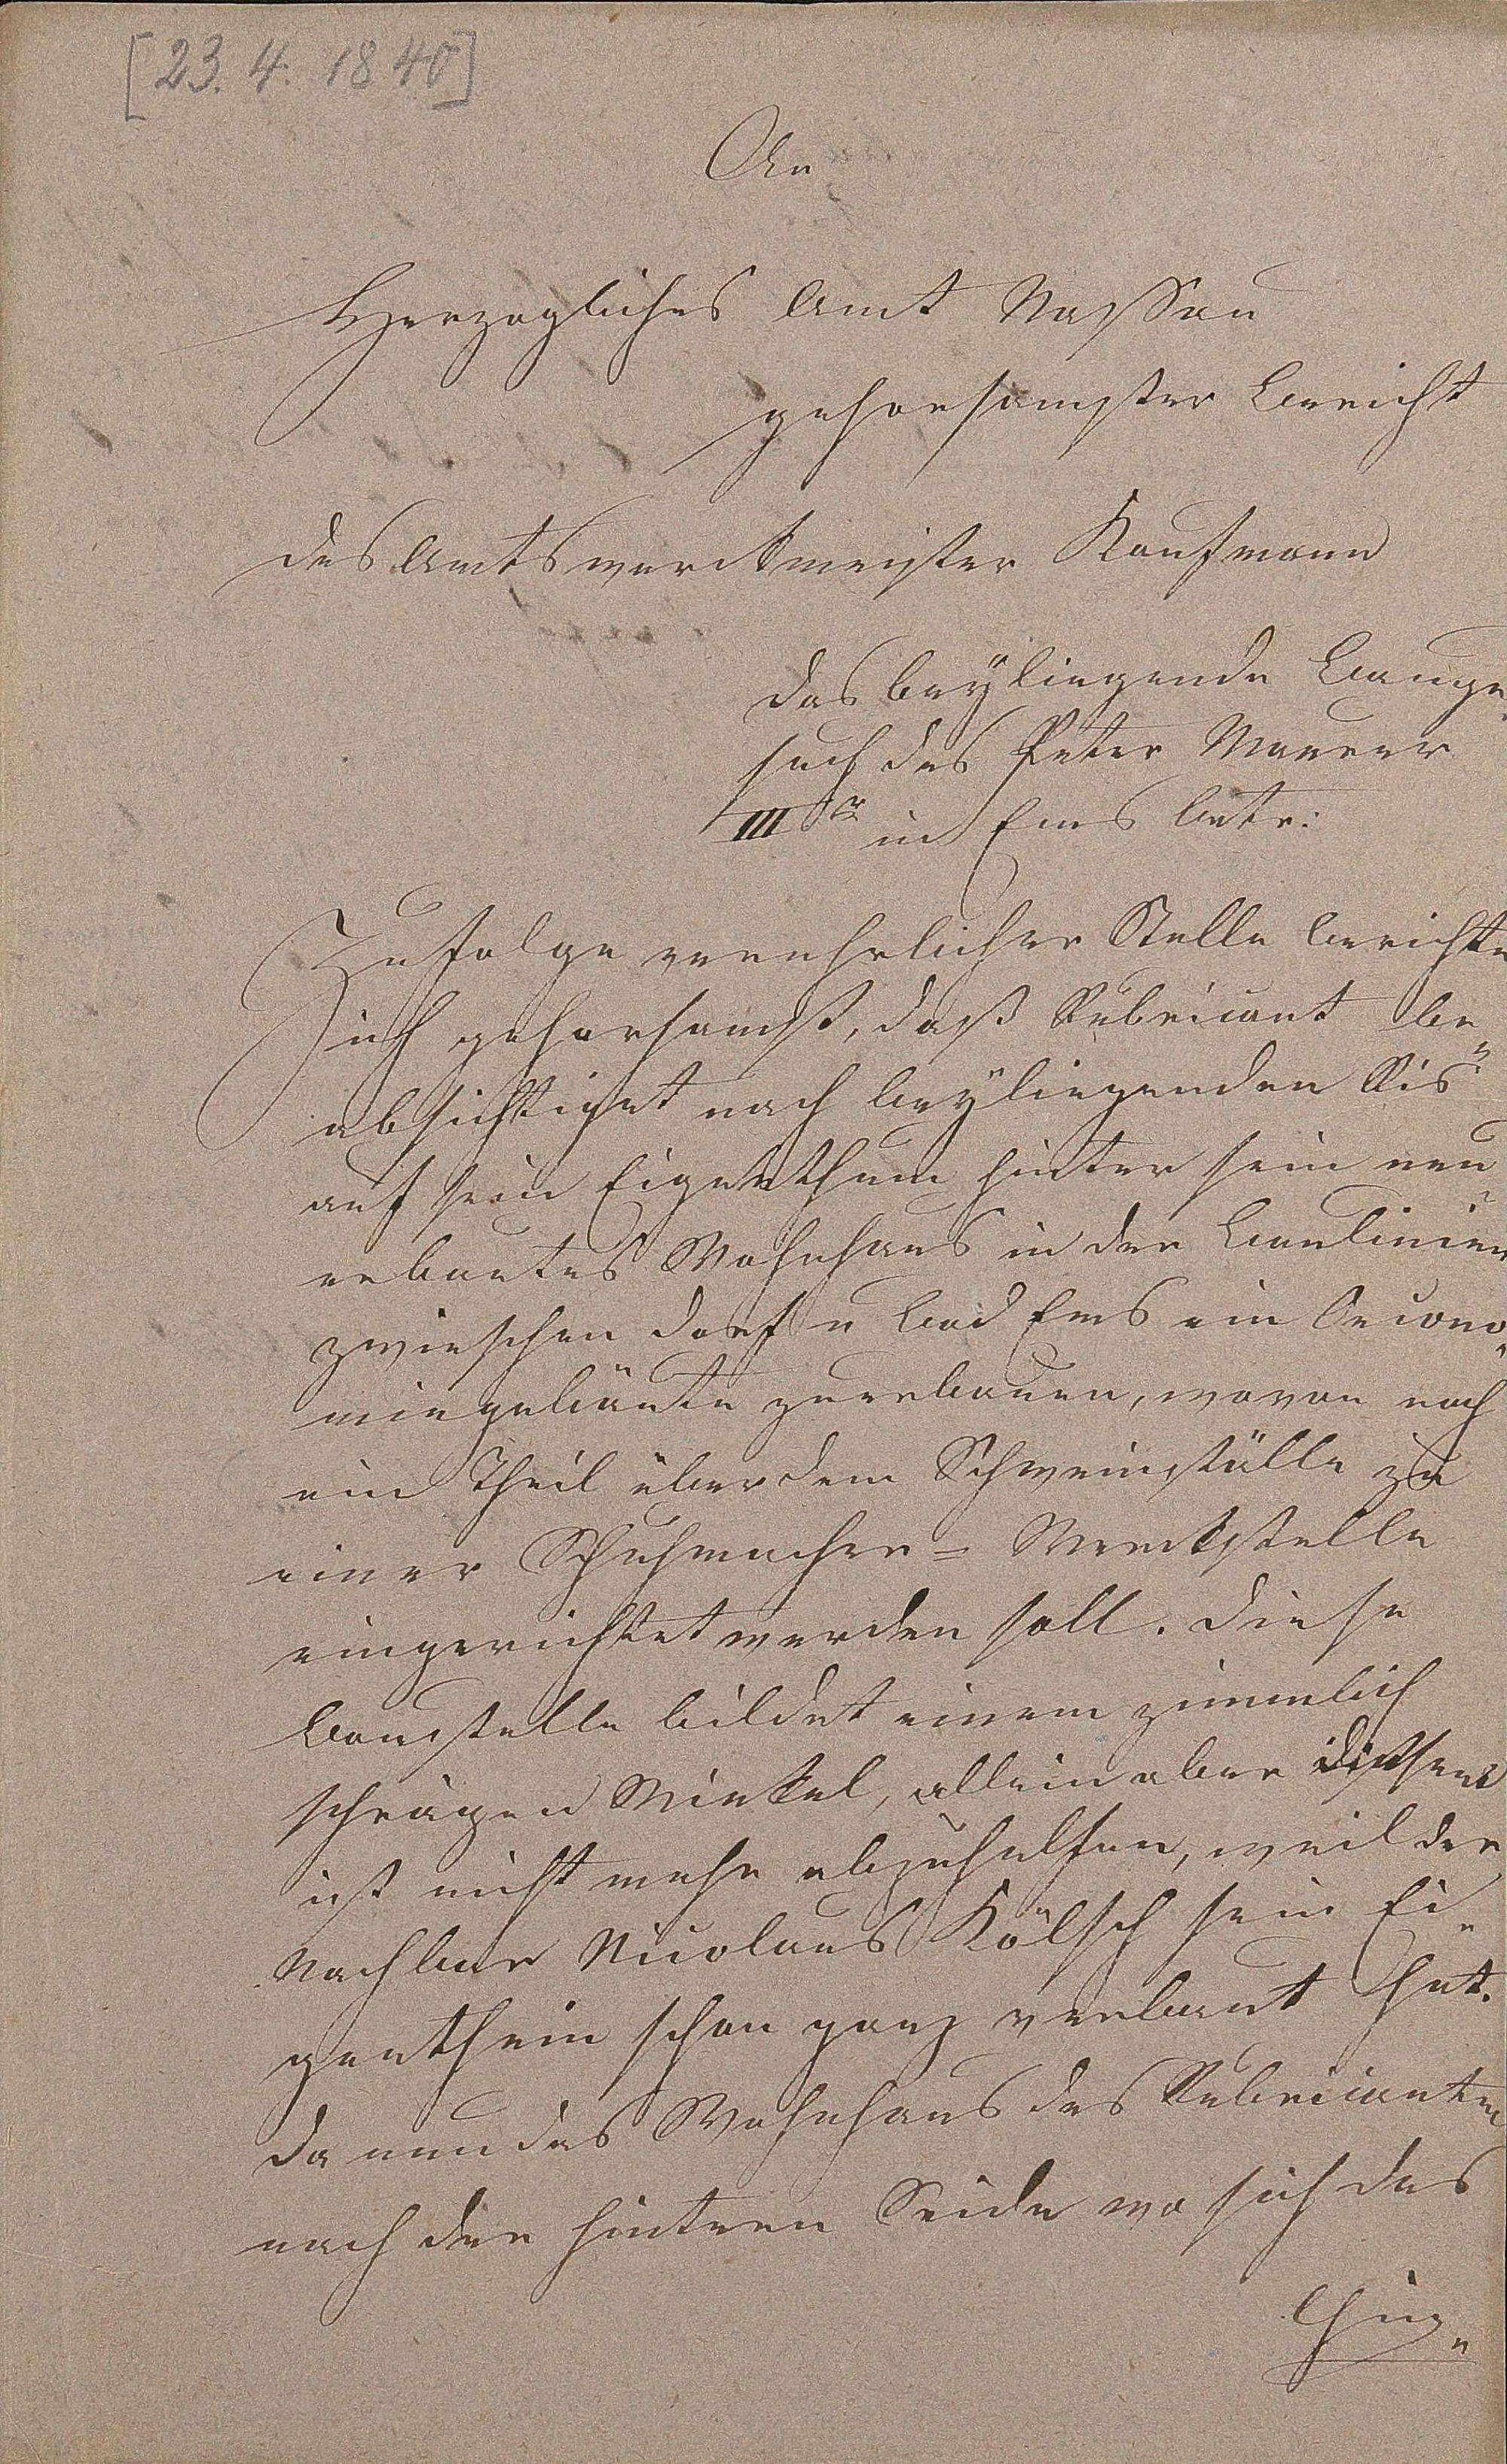 [23. 4. 1840]
An
Herzogliches Amt Nassau
gehorsamster Bericht
des Amtswerckmeister Kaufmann
das beÿliegende Bauge„
such des Peter Maurer
III ͬ in Ems betr:
Zufolge verehrlicher Stelle berichte
ich gehorsamst, daß Rubricant be„
absichtiget nach beÿliegenden Ris
auf sein Eigenthum hinter sein neu
erbautes Wohnhaus in der Baulinien
zwieschen Dorf u Bad Ems ein Oecono„
miegebäute zuerbauen, wovon noch
ein Theil über dem Schweinställe zu
einer Schuhmacher= Werckstelle
eingerichtet werden soll. Diese
Baustelle bildet einem zimmlich
schrägen Winkel, allein aber diesem
ist nicht mehr abzuhelfen, weil der
Nachbar Nicolaus Kölsch sein Ei„
genthum schon ganz verbaut hat.
Da nun das Wohnhaus des Rubricanten
nach der hintern Seide wo sich das